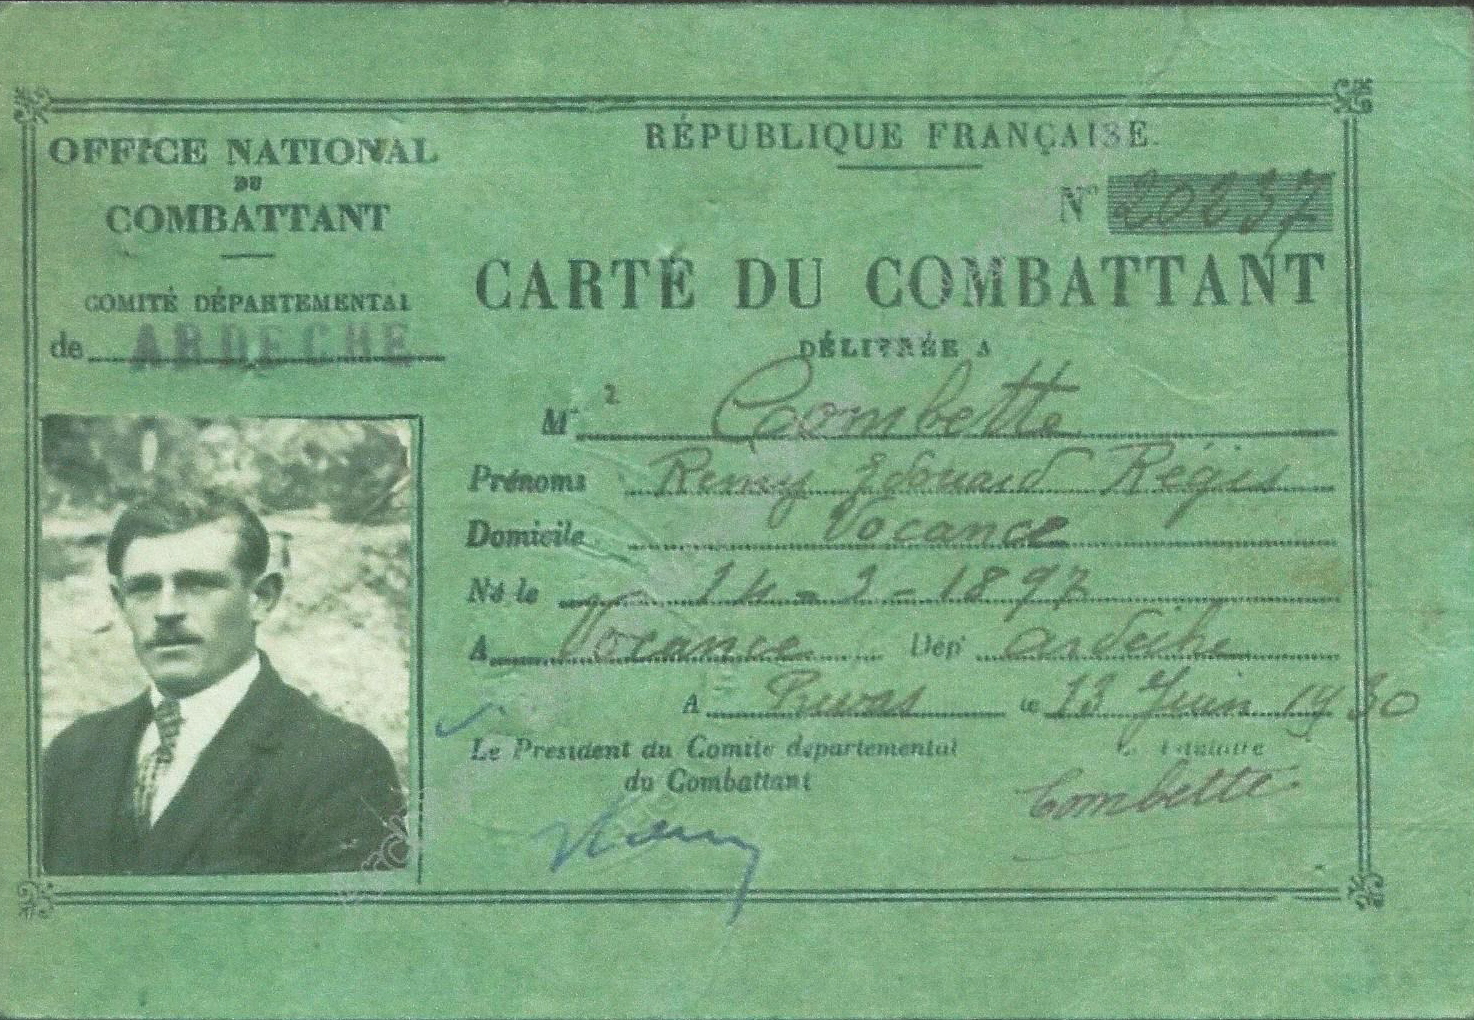 OFFICE NATIONAL
DU
COMBATTANT
COMITÉ DÉPARTEMENTAL
de ARDECHE
RÉPUBLIQUE FRANÇAISE.
N° 20237
CARTE DU COMBATTANT
DÉLIVRÉE A
Mr 2 Combette
Prénoms Remy Edouard Régis
Domicile Vocance
Né le 14 - 2 - 1897
A Vocance Dépt Ardèche
A Privas le 13 Juin 1930
Le President du Comité departemental
du Combattant
Le Titulaire
Combette